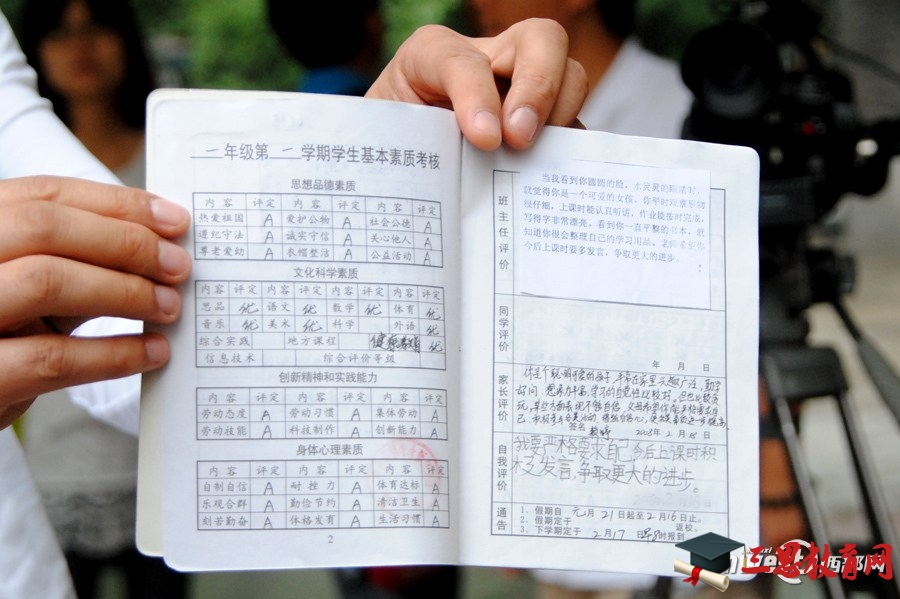 一年级第二学期学生基本素质考核
思想品德素质
内容 评定 内容 评定 内容 评定
热爱祖国 A 爱护公物 A 社会公德 A
遵纪守法 A 诚实守信 A 关心他人 A
尊老爱幼 A 衣帽整洁 A 公益活动 A
文化科学素质
内容 评定 内容 评定 内容 评定 内容 评定
思品 优 语文 优 数学 优 体育 优
音乐 优 美术 优 科学 外语 优
综合实践 地方课程 优
信息技术 综合评价等级
创新精神和实践能力
内容 评定 内容 评定 内容 评定
劳动态度 A 劳动习惯 A 集体劳动 A
劳动技能 A 科技制作 A 创新能力 A
身体心理素质
内容 评定 内容 评定 内容 评定
自制自信 A 耐挫力 A 体育达标 A
乐观合群 A 勤俭节约 A 清洁卫生 A
刻苦勤奋 A 体格发育 A 生活习惯 A
2
班主任评价
当我看到你圆圆的脸,水灵灵的眼睛时,
就觉得你是一个可爱的女孩。你平时观察事物
很仔细,上课时能认真听讲,作业能按时完成,
写得字非常漂亮,看到你一直平整的书本,就
知道你很会整理自己的学习用品,老师希望你
今后上课时要多发言,争取更大的进步。
同学评价
年 月 日
家长评价
你是个聪明可爱的孩子,平常在家里兴趣广泛,勤学
好问,
签名 2008年2月 日
自我评价
我要严格要求自己,今后上课时积
极发言,争取更大的进步。
通告
1、假期自 元月21日起至2月16日止。
2、假期定于 返校。
3、下学期定于 2月17日 时报到
三恩教育网
西部网